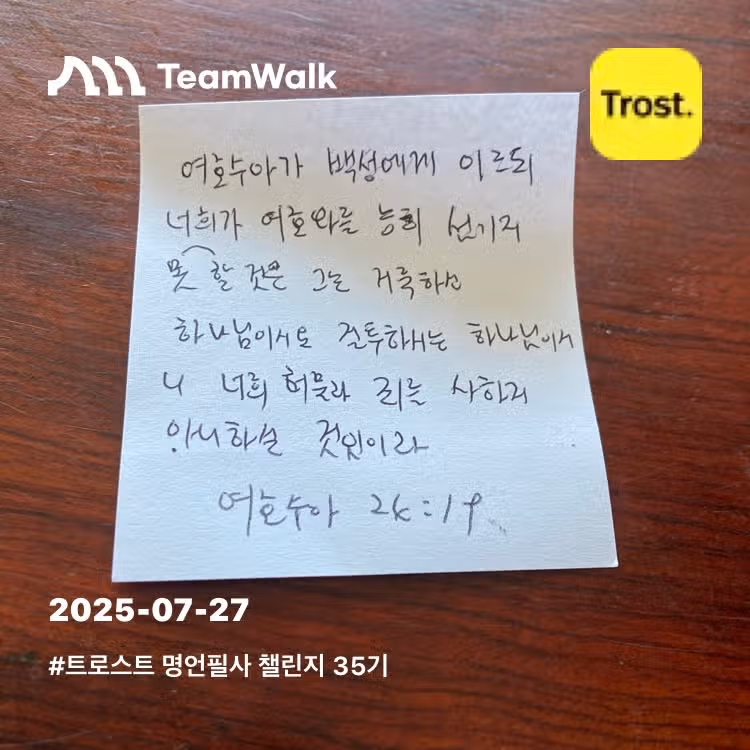 TeamWalk
Trost.
여호수아가 백성에게 이르되
너희가 여호와를 능히 섬기지
못할 것은 그는 거룩하신
하나님이시요 질투하시는 하나님이시
니 너희 허물과 죄를 사하지
아니하실 것임이라
여호수아 24:19
2025-07-27
#트로스트 명언필사 챌린지 35기